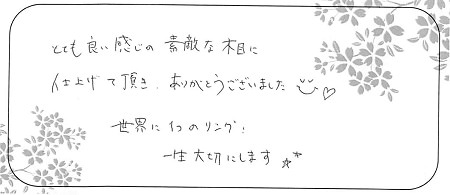 とても良い感じの 素敵な木目に
仕上げて頂き、ありがとうございました
世界に1つのリング!
一生大切にします